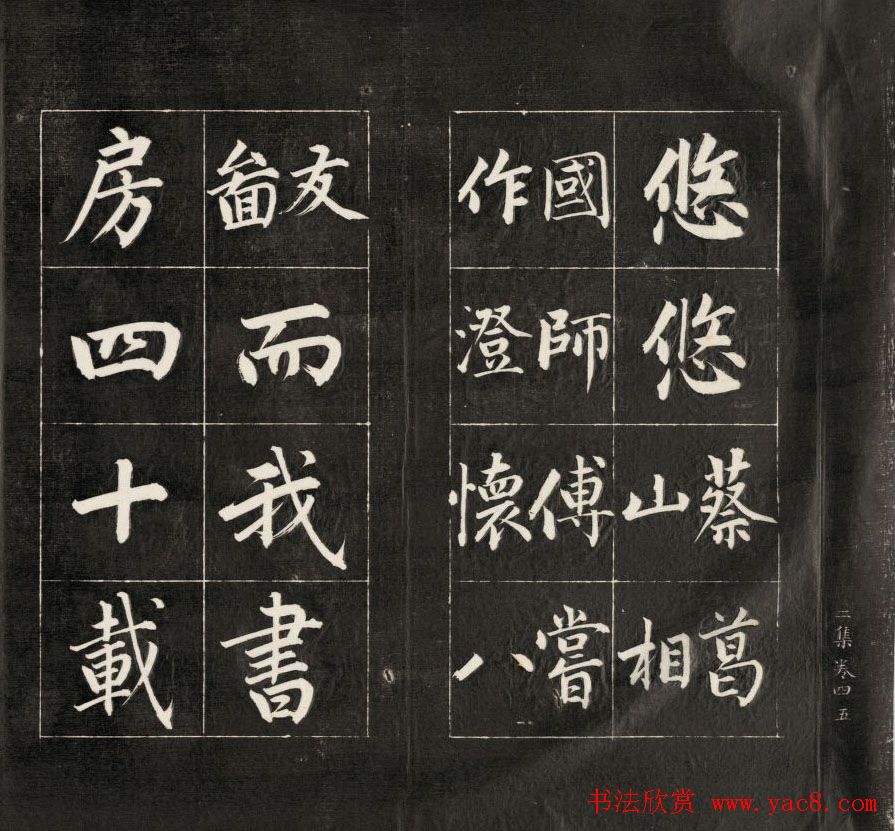 悠悠蔡葛
山相
國師傅嘗
作澄懷八
友啚而我書
房四十載
二集卷四 五
书法欣赏 www.yac8.com